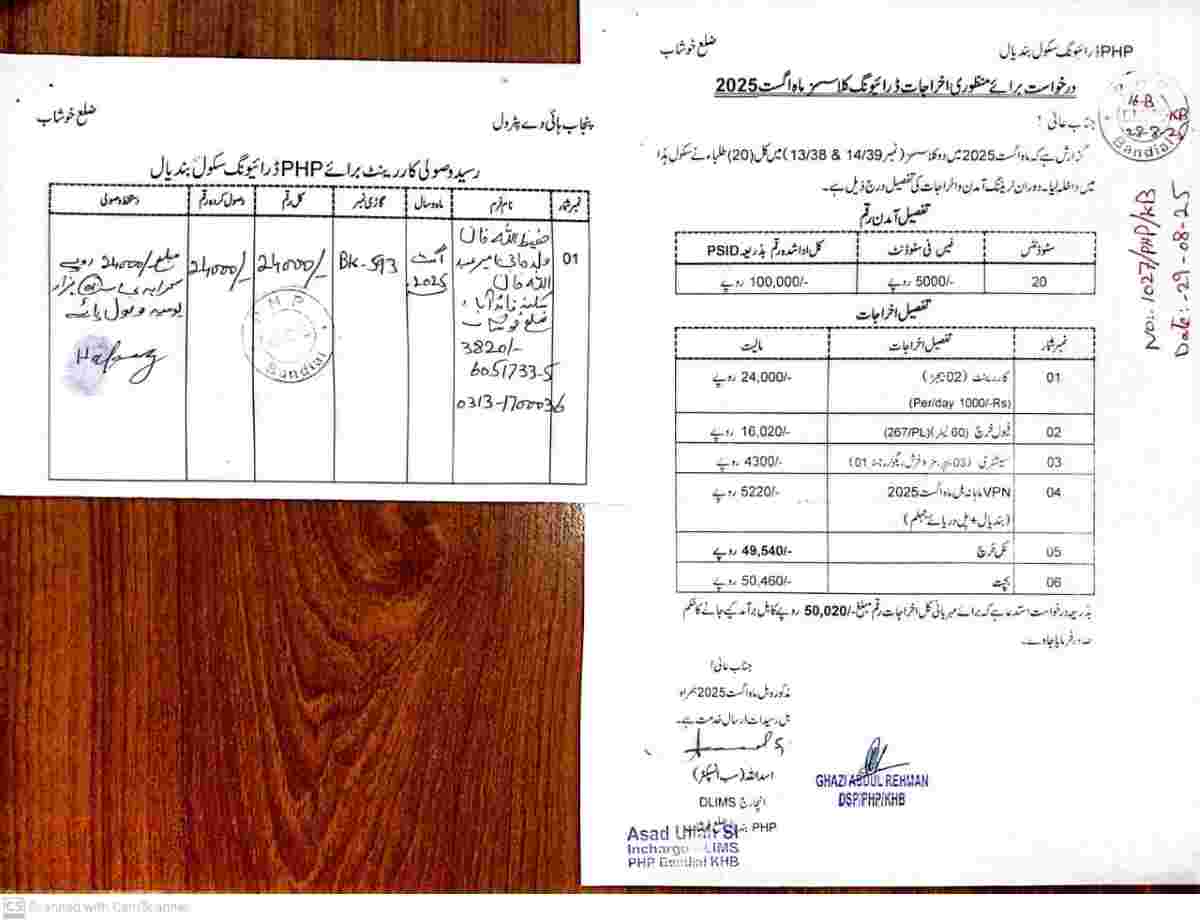 PHP ڈرائیونگ سکول بندیال ضلع خوشاب
درخواست برائے منظوری اخراجات ڈرائیونگ کلاسسز ماہ اگست 2025
جناب عالی !
گزارش ہے کہ ماہ اگست 2025 میں دو کلاسسز (نمبر 14/39 & 13/38) میں کل (20) طلباء نے سکول ہذا
میں داخلہ لیا۔ دوران ٹریننگ آمدن و اخراجات کی تفصیل درج ذیل ہے۔
تفصیل آمدن رقم
سٹوڈنٹس فیس فی سٹوڈنٹ کل ادا شدہ رقم بذریعہ PSID
20 5000/- روپے 100,000/- روپے
تفصیل اخراجات
نمبر شمار تفصیل اخراجات مالیت
01 کار رینٹ (02 بیجز) 24,000/- روپے
(Per/day 1000/-Rs)
02 فیول خرچ (60 لیٹر) (267/PL) 16,020/- روپے
03 سٹیشنری 4300/- روپے
04 VPN ماہانہ بل ماہ اگست 2025 5220/- روپے
(بندیال + پل دریائے جہلم)
05 کل خرچ 49,540/- روپے
06 بچت 50,460/- روپے
بذریعہ درخواست استدعا ہے کہ برائے مہربانی کل اخراجات رقم مبلغ 50,020/- روپے کا بل برآمد کیے جانے کا حکم
صادر فرمایا جاوے۔
جناب عالی!
مذکورہ بل ماہ اگست 2025 ہمراہ
بل رسیدات ارسال خدمت ہے۔
اسد اللہ (سب انسپکٹر)
انچارج DLIMS
PHP
Asad Ullah SI
Incharge DLIMS
PHP Bandial KHB
GHAZI ABDUL REHMAN
DSP/PHP/KHB
16-B
KB
28-8-25
Bandial
No:. 1027/PHP/KB
Date:- 29-08-25
پنجاب ہائی وے پٹرول ضلع خوشاب
رسید وصولی کار رینٹ برائے PHP ڈرائیونگ سکول بندیال
نمبر شمار نام فرم ماہ و سال گاڑی نمبر کل رقم وصول کردہ رقم دستخط وصولی
01 حفیظ اللہ خان
اللہ خان
ضلع خوشاب
3820/-
6051733-5
0313-1700036
اگست
2025
BK-593
24000/-
24000/-
مبلغ -/24000 روپے
P.H.P
Bandial
CS Scanned with CamScanner